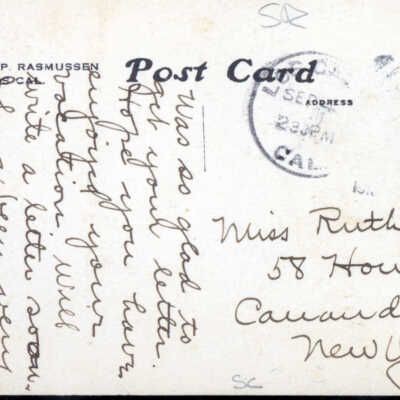 P. RASMUSSEN
CAL.
Post Card
ADDRESS
SEP
230PM
CAL.
Was so glad to
get your letter.
Hope you have
enjoyed your
vacation will
write a letter soon.
Miss Ruth
58 How
Canand
New Y
SC